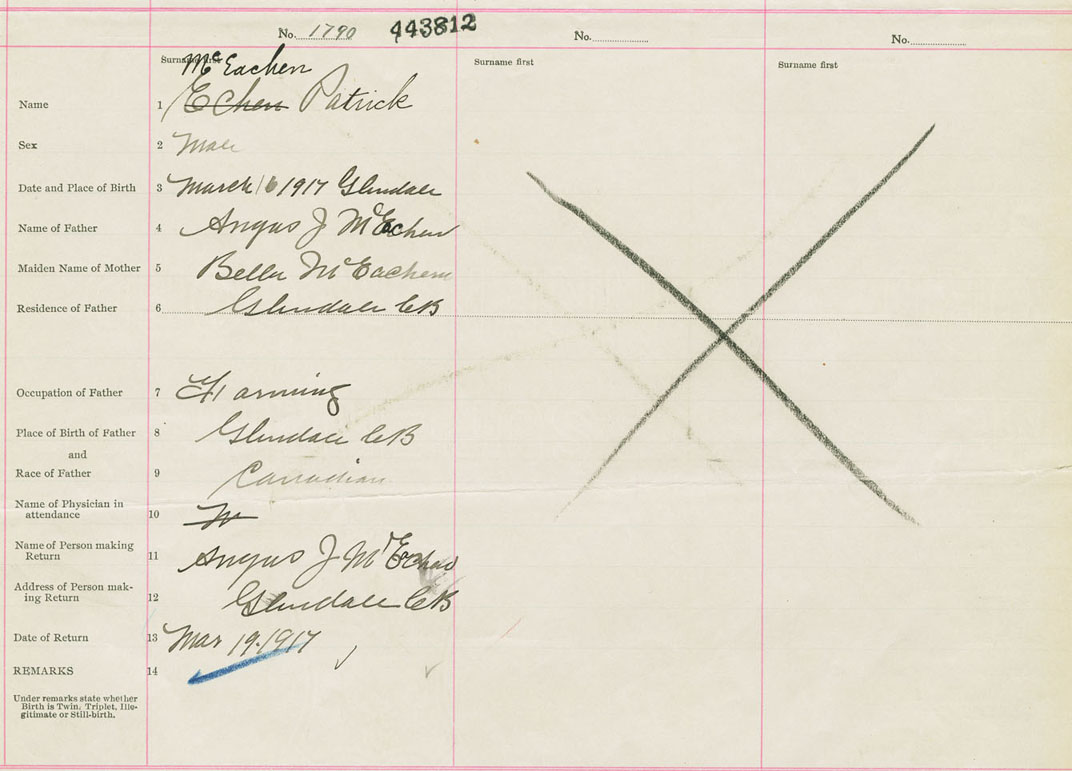 No. 1790 443812 No. No.
Surname first Surname first Surname first
McEachen
Name 1 Echen Patrick
Sex 2 Male
Date and Place of Birth 3 March 16 1917 Glendale
Name of Father 4 Angus J McEachen
Maiden Name of Mother 5 Bella McEachern
Residence of Father 6 Glendale CB
Occupation of Father 7 Farming
Place of Birth of Father 8 Glendale CB
and
Race of Father 9 Canadian
Name of Physician in
attendance 10
Name of Person making
Return 11 Angus J McEchen
Address of Person mak-
ing Return 12 Glendale CB
Date of Return 13 Mar 19. 1917
REMARKS 14
Under remarks state whether
Birth is Twin, Triplet, Ille-
gitimate or Still-birth.